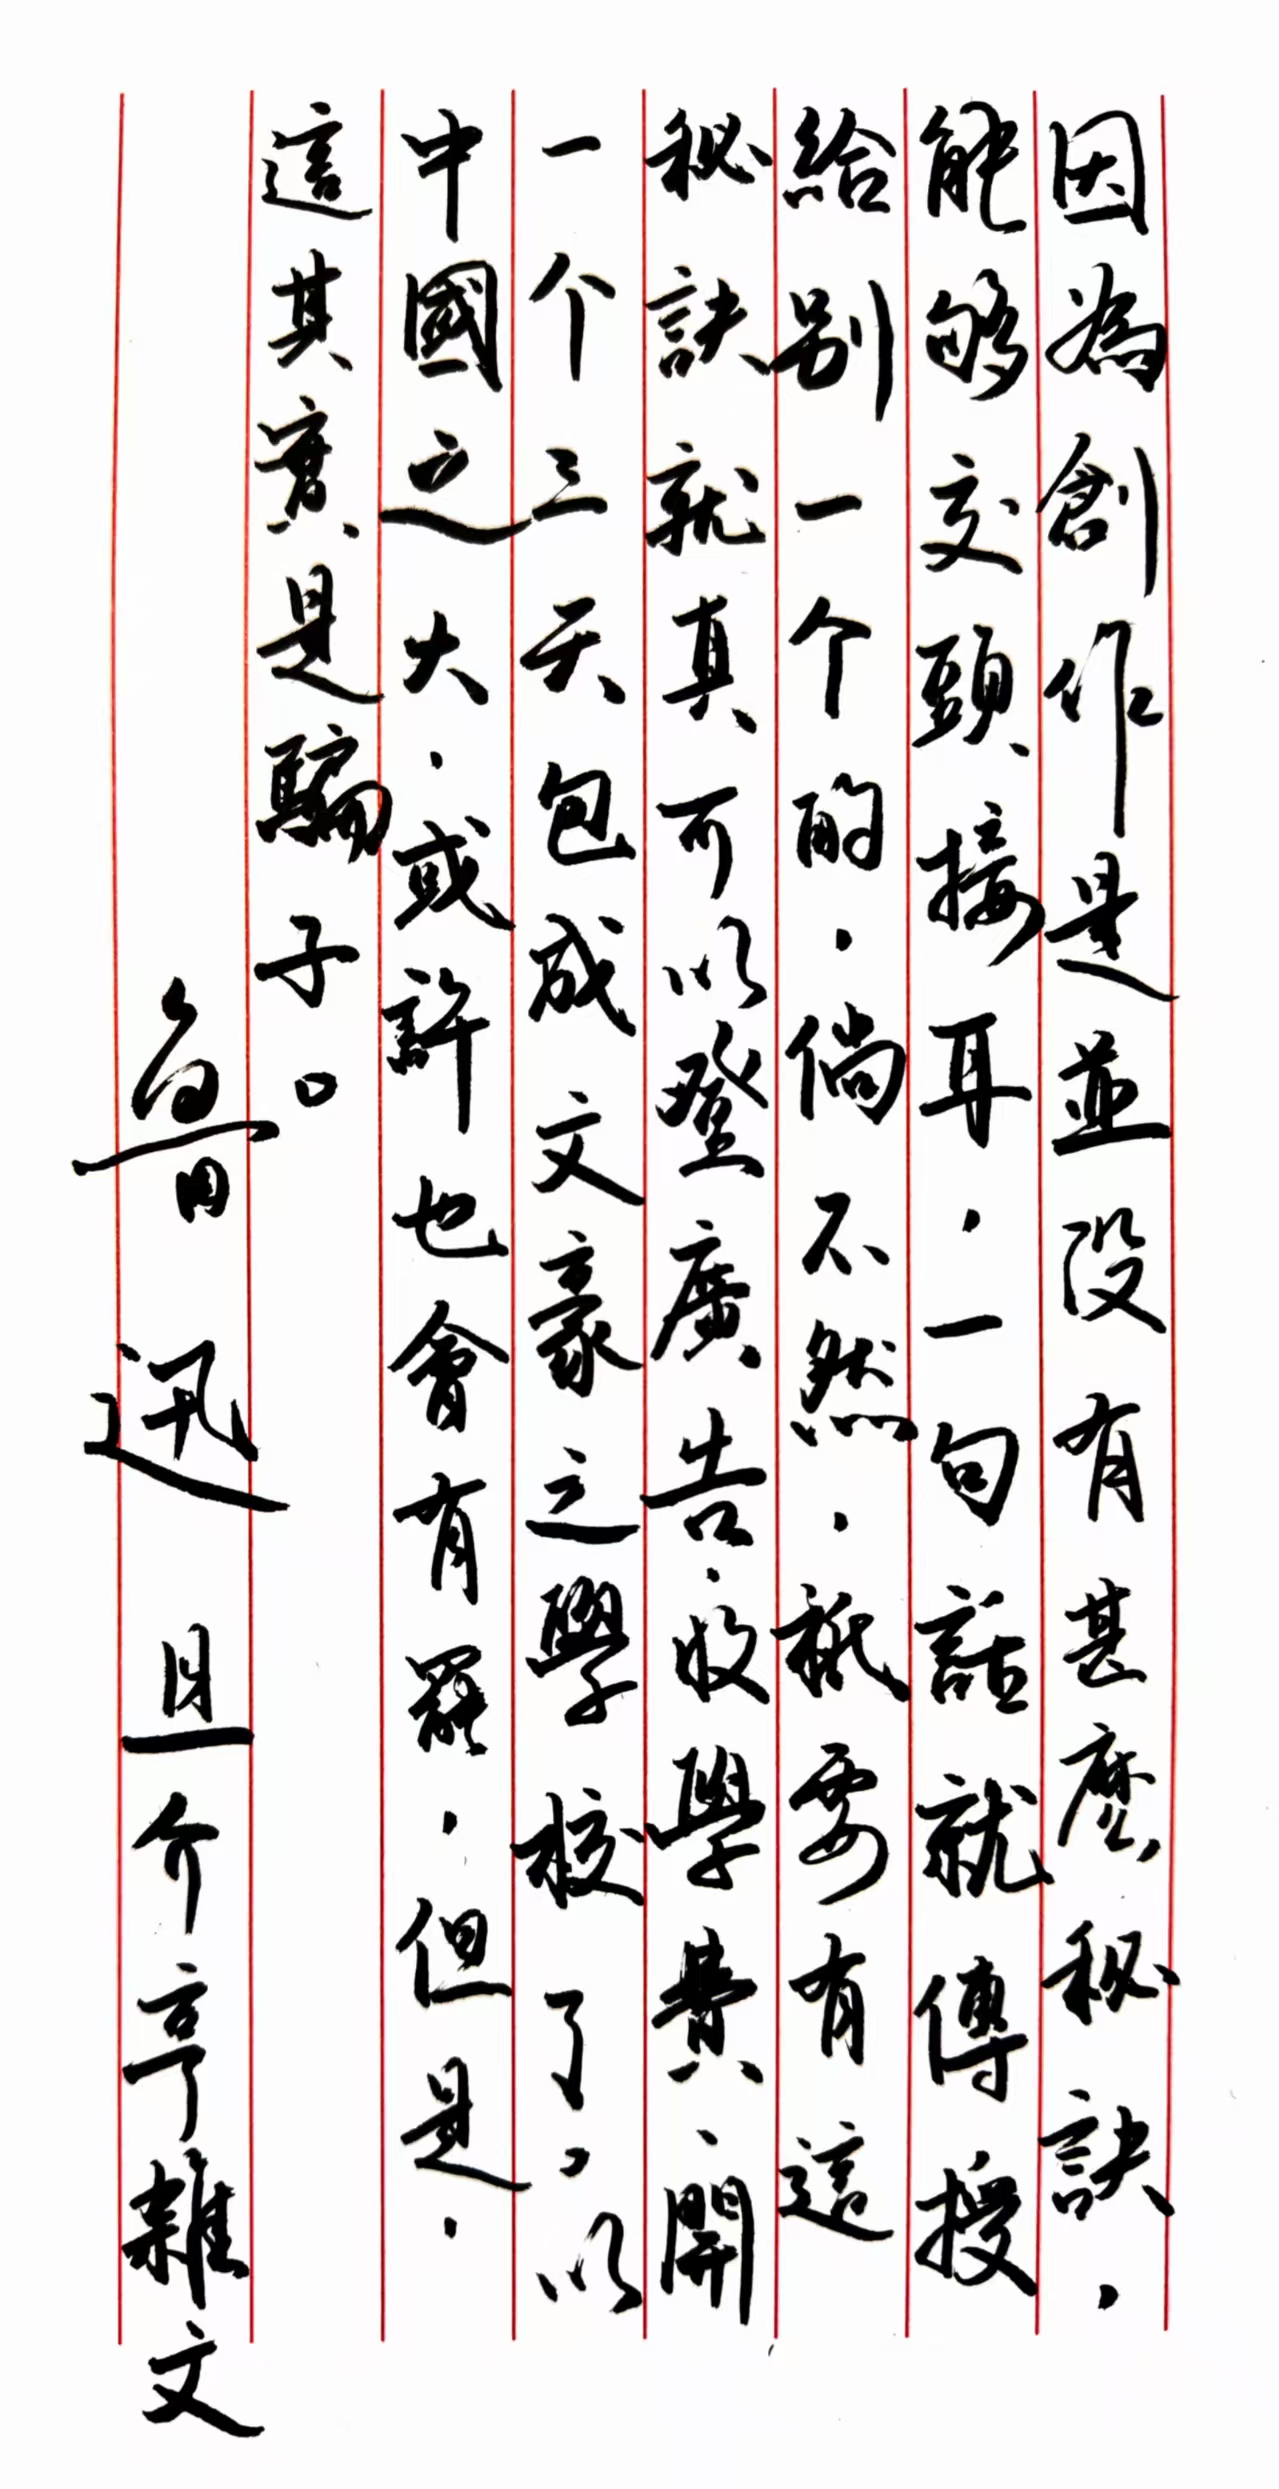 因為創作是並沒有甚麼秘訣，
能够交頭接耳，一句話就傳授
給别一个的，倘不然，祇要有這
秘訣就真可以登廣告，收學費，開
一个三天包成文豪之學校了，以
中國之大，或許也會有罷，但是，
這其實是騙子。
魯迅 且介亭雜文